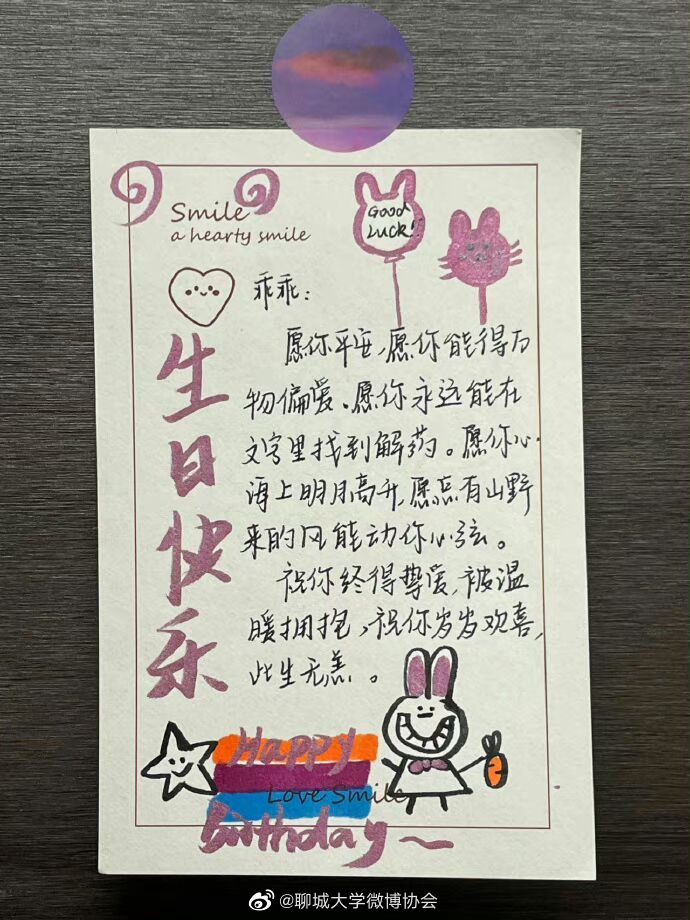 Smile
a hearty smile
Good
Luck!!
乖乖：
生日快乐
愿你平安，愿你能得万
物偏爱。愿你永远能在
文字里找到解药。愿你心
海上明月高升，愿总有山野
来的风能动你心弦。
祝你终得挚爱，被温
暖拥抱，祝你岁岁欢喜，
此生无恙。
Happy
Love Smile
Birthday~
@聊城大学微博协会